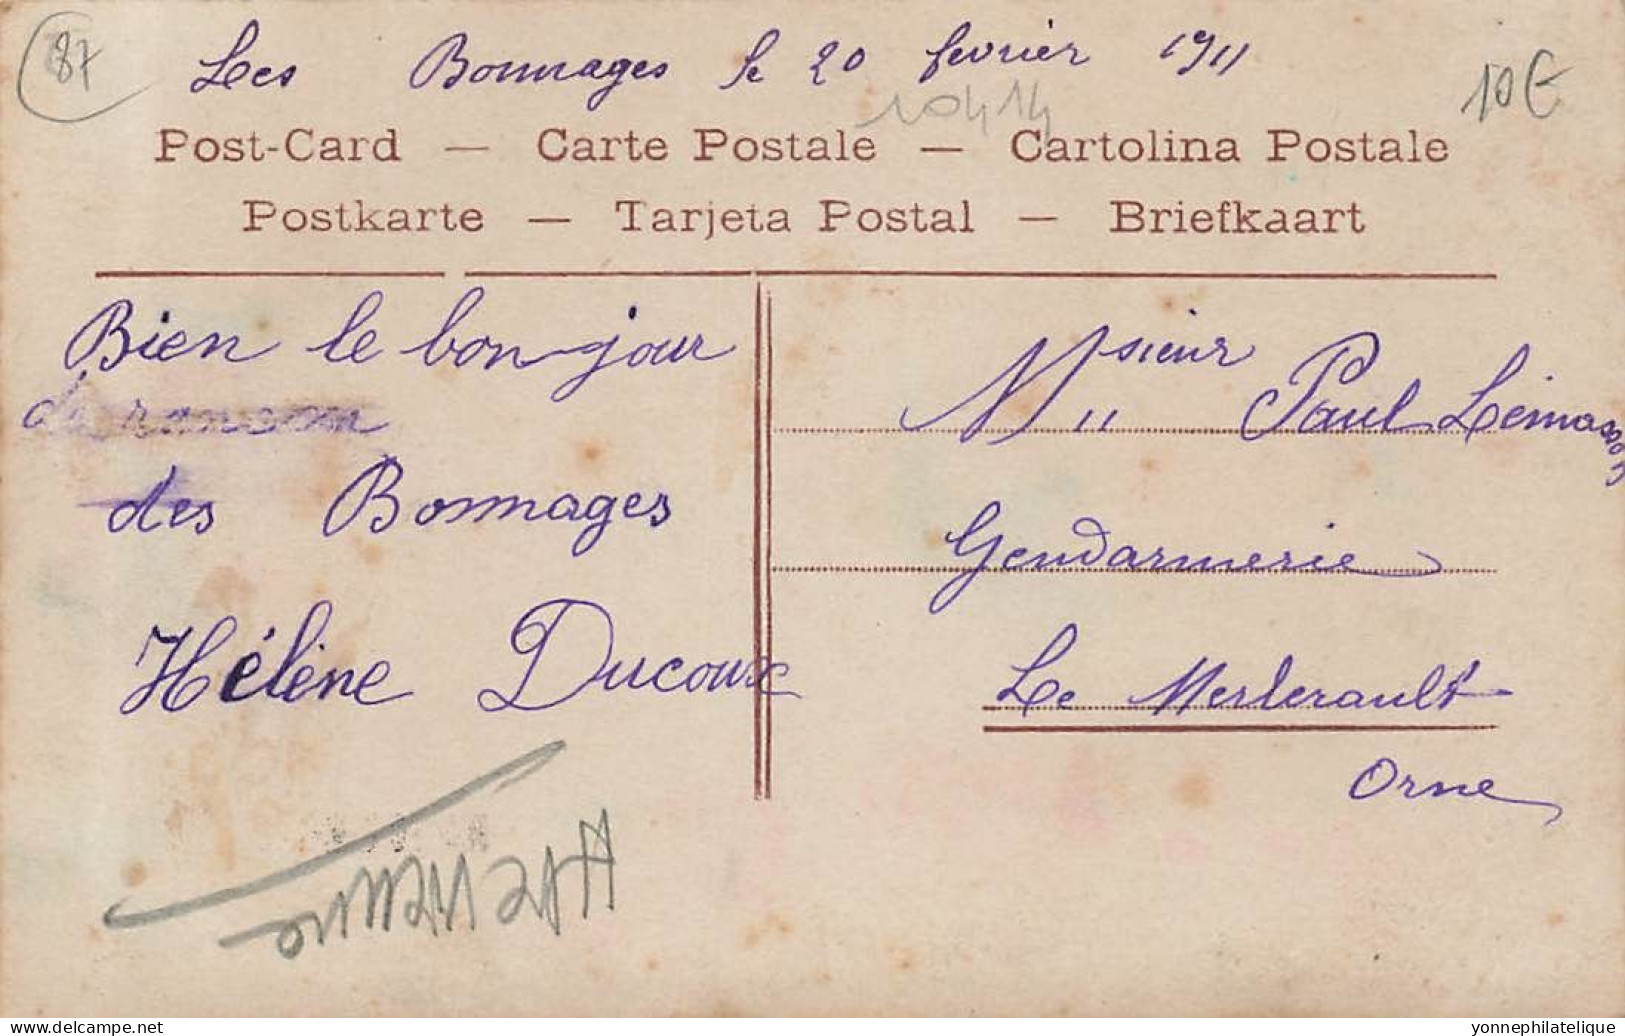 87
Les Bonnages le 20 fevrier 1911
10414
10€
Post-Card — Carte Postale — Cartolina Postale
Postkarte — Tarjeta Postal — Briefkaart
Bien le bon jour
des Bonnages
Hélène Ducoux
Msieur Paul Lémasson
Gendarmerie
Le Merlerault
Orne
www.delcampe.net
yonnephilatelique